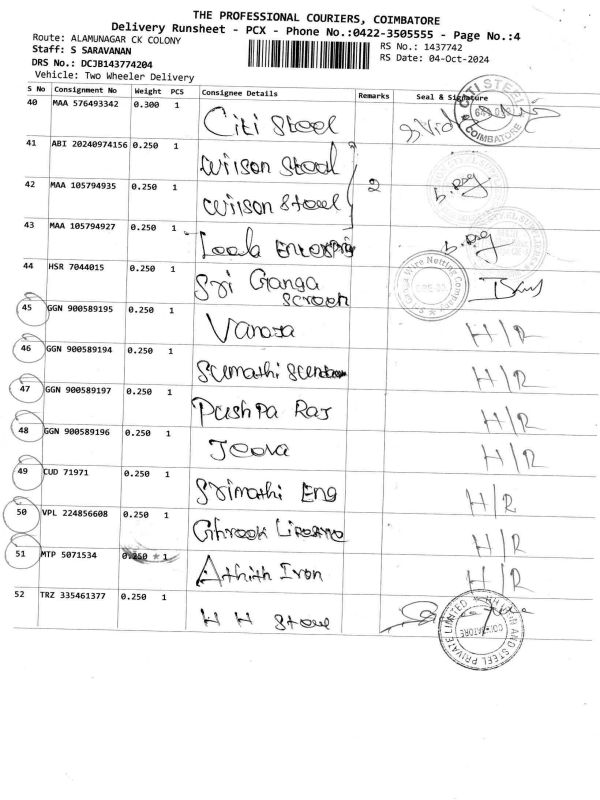 THE PROFESSIONAL COURIERS, COIMBATORE
Delivery Runsheet - PCX - Phone No.:0422-3505555 - Page No.:4
Route: ALAMUNAGAR CK COLONY
RS No.: 1437742
Staff: S SARAVANAN
RS Date: 04-Oct-2024
DRS No.: DCJB143774204
Vehicle: Two Wheeler Delivery
S No Consignment No Weight PCS Consignee Details Remarks Seal & Signature
40 MAA 576493342 0.300 1 Citi Steel
COIMBATORE
41 ABI 20240974156 0.250 1 Wilson Steel
2
42 MAA 105794935 0.250 1 Wilson Steel
43 MAA 105794927 0.250 1
44 HSR 7044015 0.250 1 Sri Ganga
Screen
Wire Netting Company
45 GGN 900589195 0.250 1 H/R
46 GGN 900589194 0.250 1 Sumathi H/R
47 GGN 900589197 0.250 1 Pushpa Raj H/R
48 GGN 900589196 0.250 1 Jeeva H/R
49 CUD 71971 0.250 1 Srimathi Eng H/R
50 VPL 224856608 0.250 1 H/R
51 MTP 5071534 0.250 * 1 Athith Iron H/R
52 TRZ 335461377 0.250 1 H H Steel
AND STEEL PRIVATE LIMITED
COIMBATORE